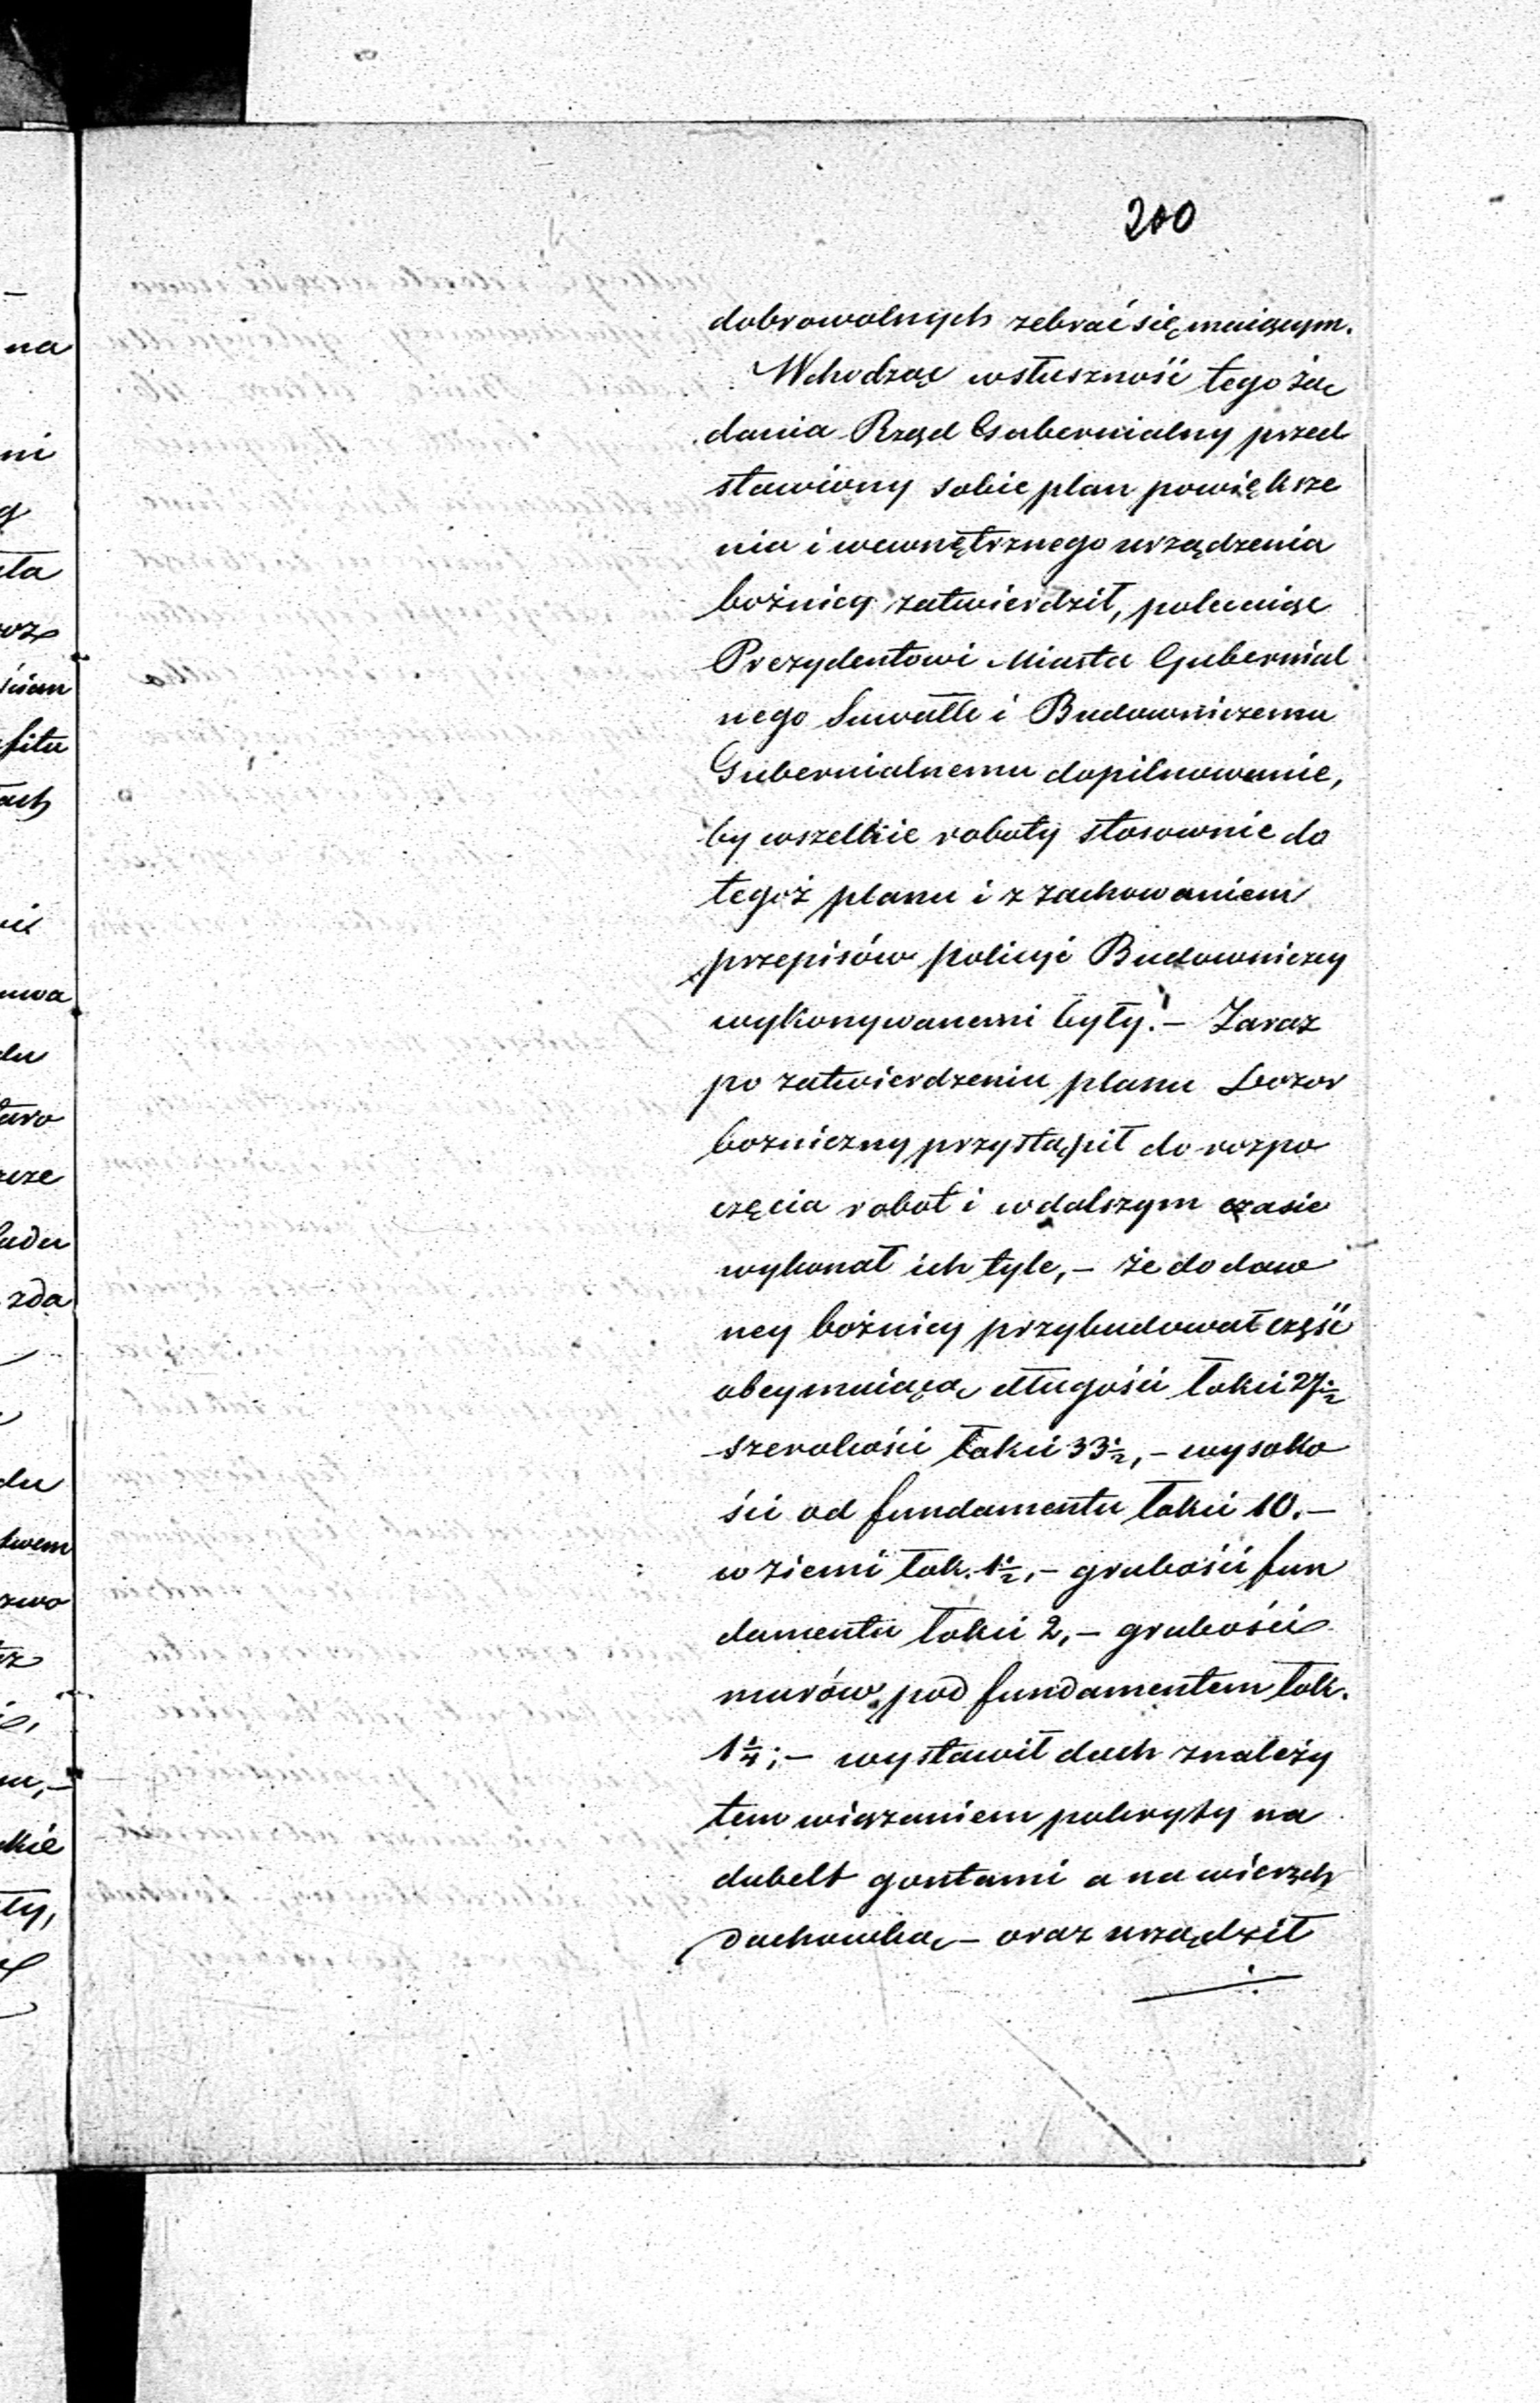 200
dobrowolnych zebrać się maiącym.
Wchodząc w słuszność tego żą
dania Rząd Gubernialny przed
stawiony sobie plan powiększe
nia i wewnętrznego urządzenia
bożnicy zatwierdził, polecaiąc
Prezydentowi Miasta Gubernial
nego Suwałk i Budowniczemu
Gubernialnemu dopilnowanie,
by wszelkie roboty stosownie do
tegoż planu i z zachowaniem
przepisów policyi Budowniczey
wykonywanemi były. – Zaraz
po zatwierdzeniu planu Dozor
bożniczny przystąpił do rozpo
częcia robot i w dalszym czasie
wykonał ich tyle, – że do daw
ney bożnicy przybudował część
obeymuiącą długości łokci 27 1/2
szerokości łokci 33 1/2, – wysoko
ści od fundamentu łokci 10. –
w ziemi łok. 1 1/2, – grubości fun
damentu łokci 2, – grubości
murów pod fundamentem łok.
1 1/4; – wystawił dach z należy
tem wiązaniem pokryty na
dubelt gontami a na wierzch
dachówką, – oraz urządził
na
ni
g
ła
roz
ścian
fitu
ach
ić
uwa
du
taro
cze
ładu
zda
du
twem
zwo
kie
ły,